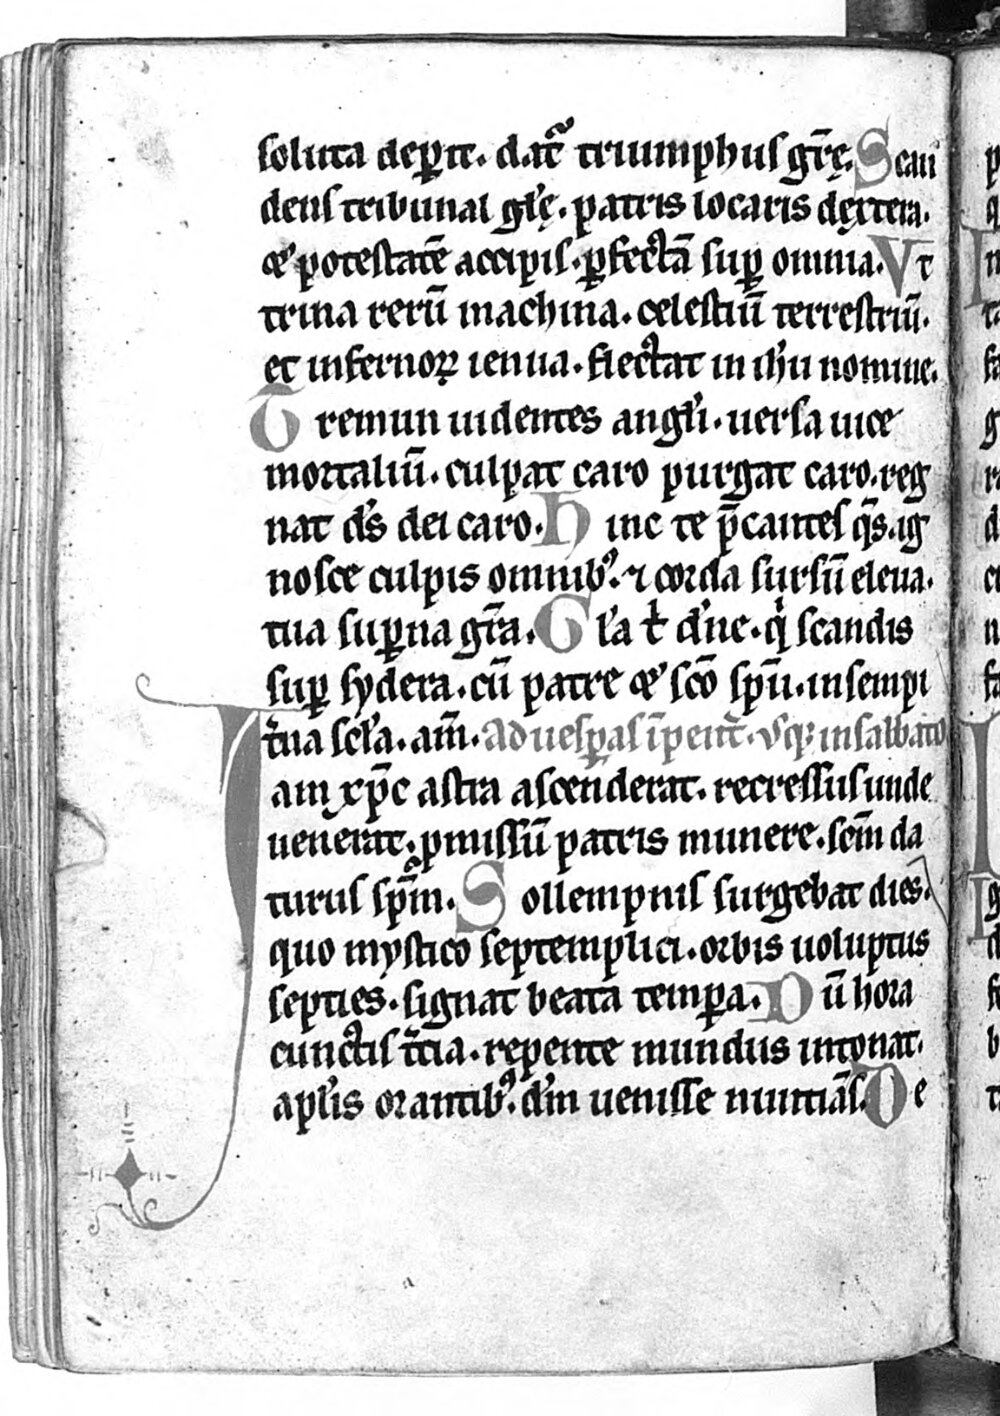 soluta deꝑit. dat᷑ triumphus gr̄ę. Scan
dens tribunal gl̄ę. patris locaris dęxtera.
& potestatē accipis. ꝑfectā suꝑ omnia. Vt
trina rerū machina. celestiū terrestriū.
et infernoꝝ ienua. flectat in ihu nomine.
Tremun uidentes angl̓i. uersa uice
mortaliū. culpat caro purgat caro. reg
nat dс̄ dei caro. Hinc te p̄cantes q̄s. ig
nosce culpis omnibꝰ. ⁊ corda sursū eleua.
tua suꝑna gr̄a. Gl̓a t̄ dn̓e. qͥ scandis
suꝑ sydera. cū patre & sc̄o sp̄u. in sempi
t̓na sc̄la. am̄. ad uesꝑas ī pent̓. vsqꝫ in sabbato
Iam xp̄c astra ascenderat. recressus unde
uenerat. ꝓmissū patris munere. sc̄m da
turus sp̄m. Sollempnis surgebat dies.
quo mystico septemplici. orbis uoluptus
septies. signat beata temꝑa. Dū hora
cunctis t̓cia. repente mundus intonat.
apl̓is orantibꝰ. dm̓ uenisse nuntiās. De